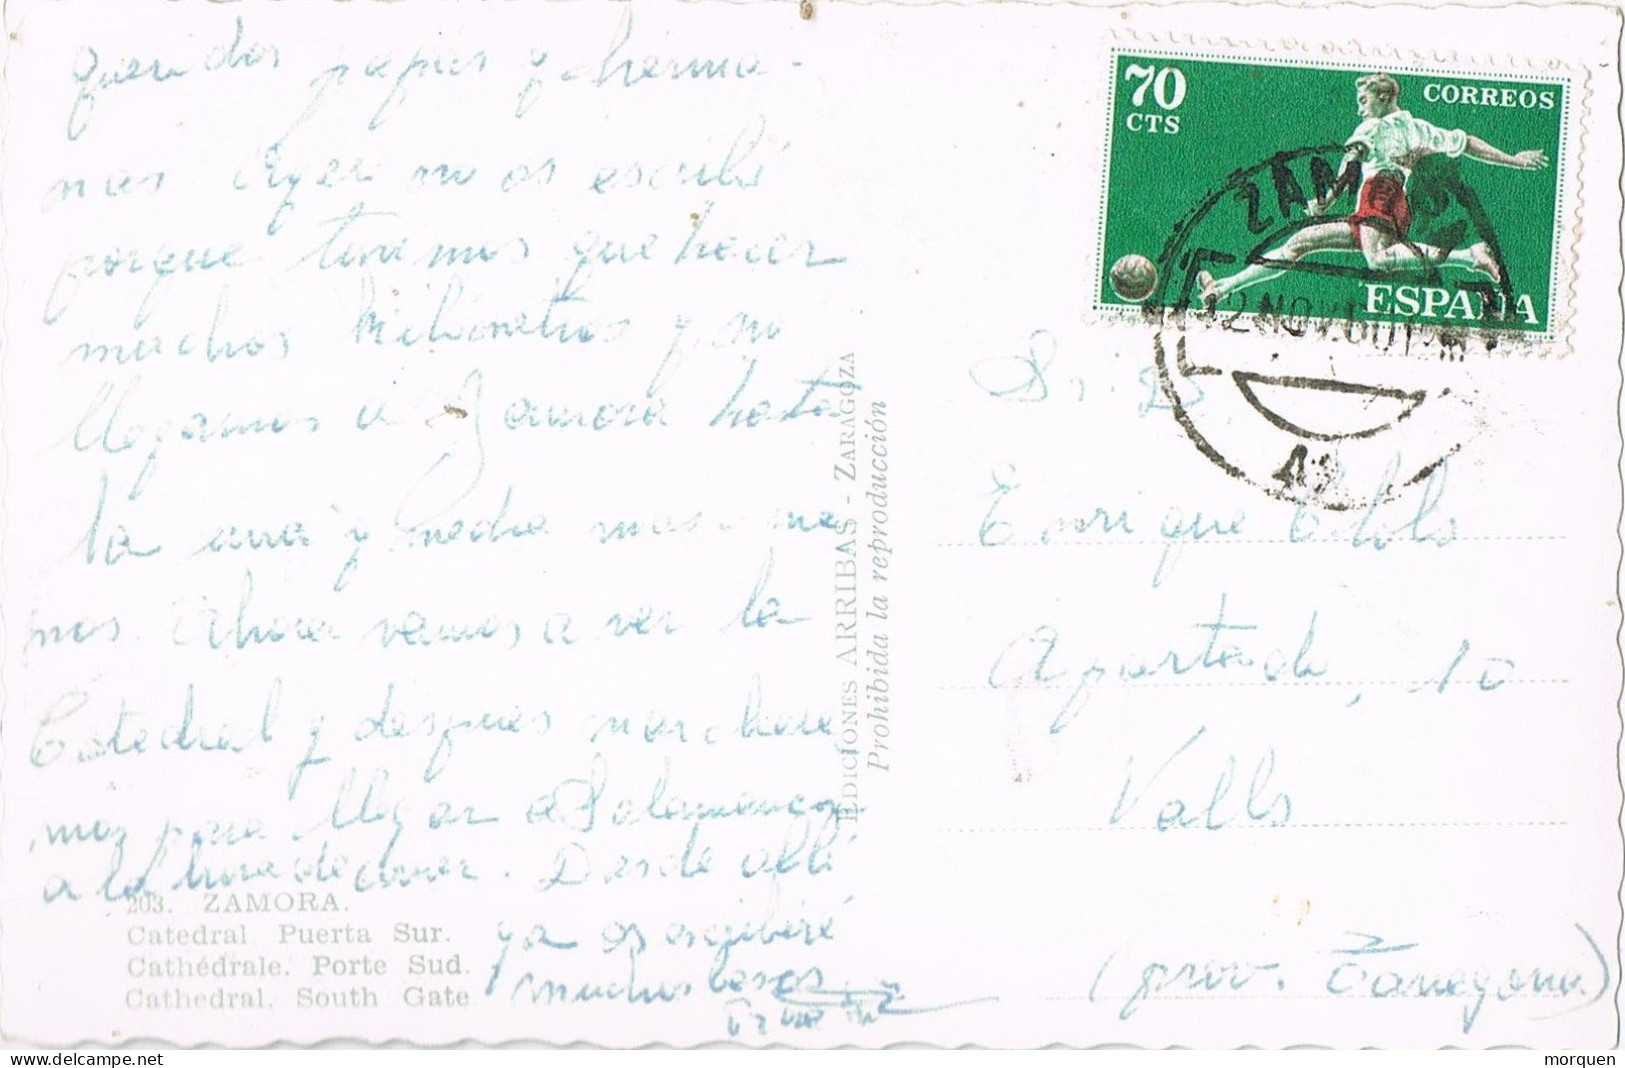 queridos papás y herma-
nas. Ayer no os escribí
porque tenemos que hacer
muchos kilometros y no
llegamos a Zamora hasta
la una y media mas o me
nos. Ahora vamos a ver la
Catedral y despues marchare
mos para llegar a Salamanca
a la hora de cenar. Desde allí
ya os escribiré
muchos besos
203. ZAMORA.
Catedral Puerta Sur.
Cathédrale. Porte Sud.
Cathedral. South Gate
EDICIONES ARRIBAS - ZARAGOZA
Prohibida la reproducción
70
CTS
CORREOS
ESPAÑA
ZAMORA
12 NOV. 60
Sr. D
Enrique
Apartado, 10
Valls
(prov. Tarragona)
morquen